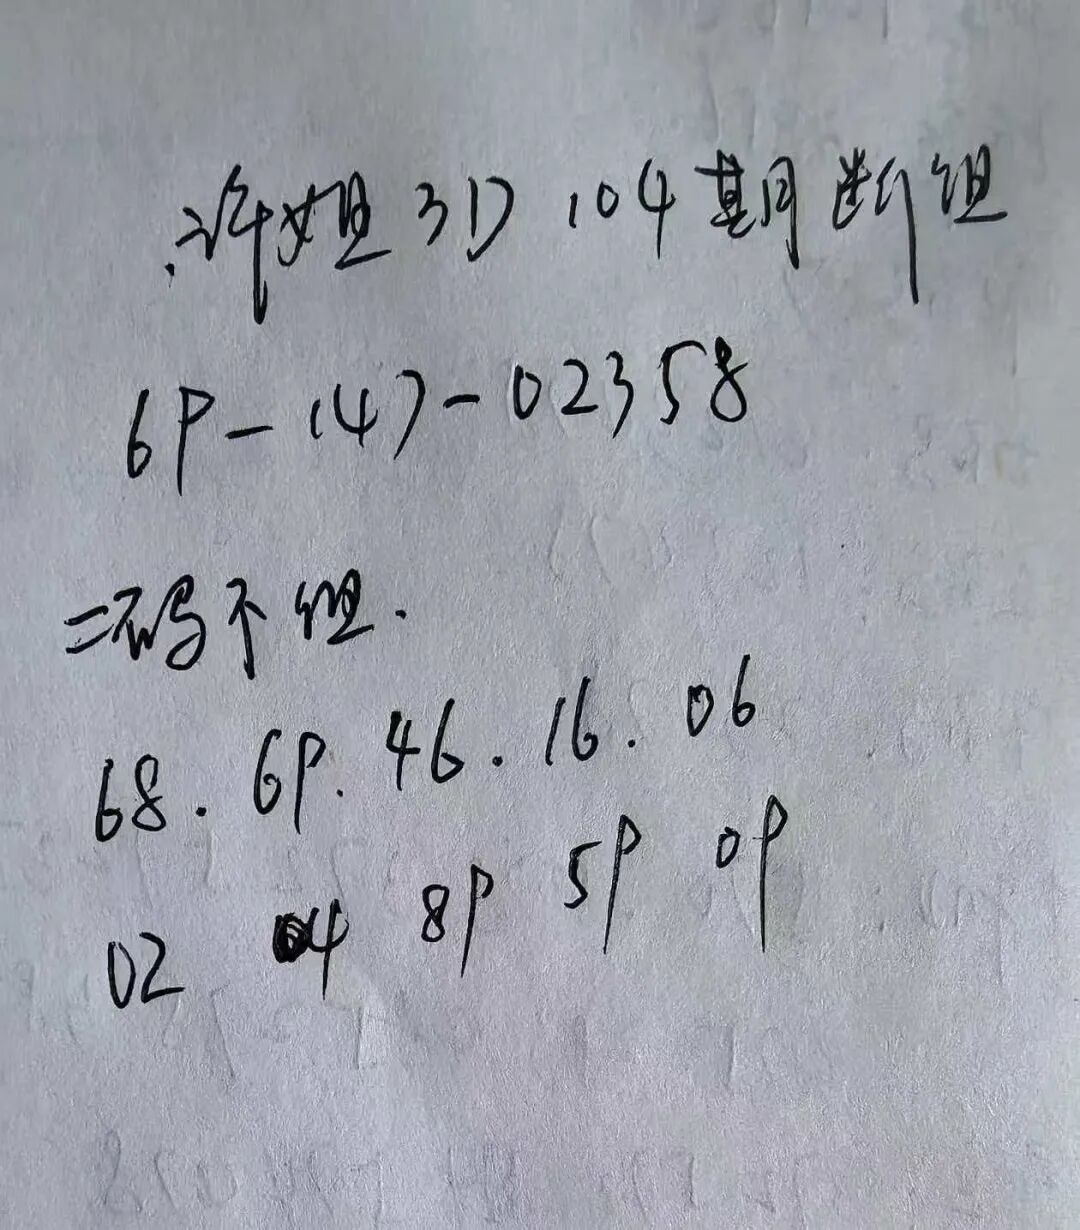 许姐3D 104期断组
69-147-02358
二码不组.
68. 69. 46. 16. 06
02 04 89 59 09